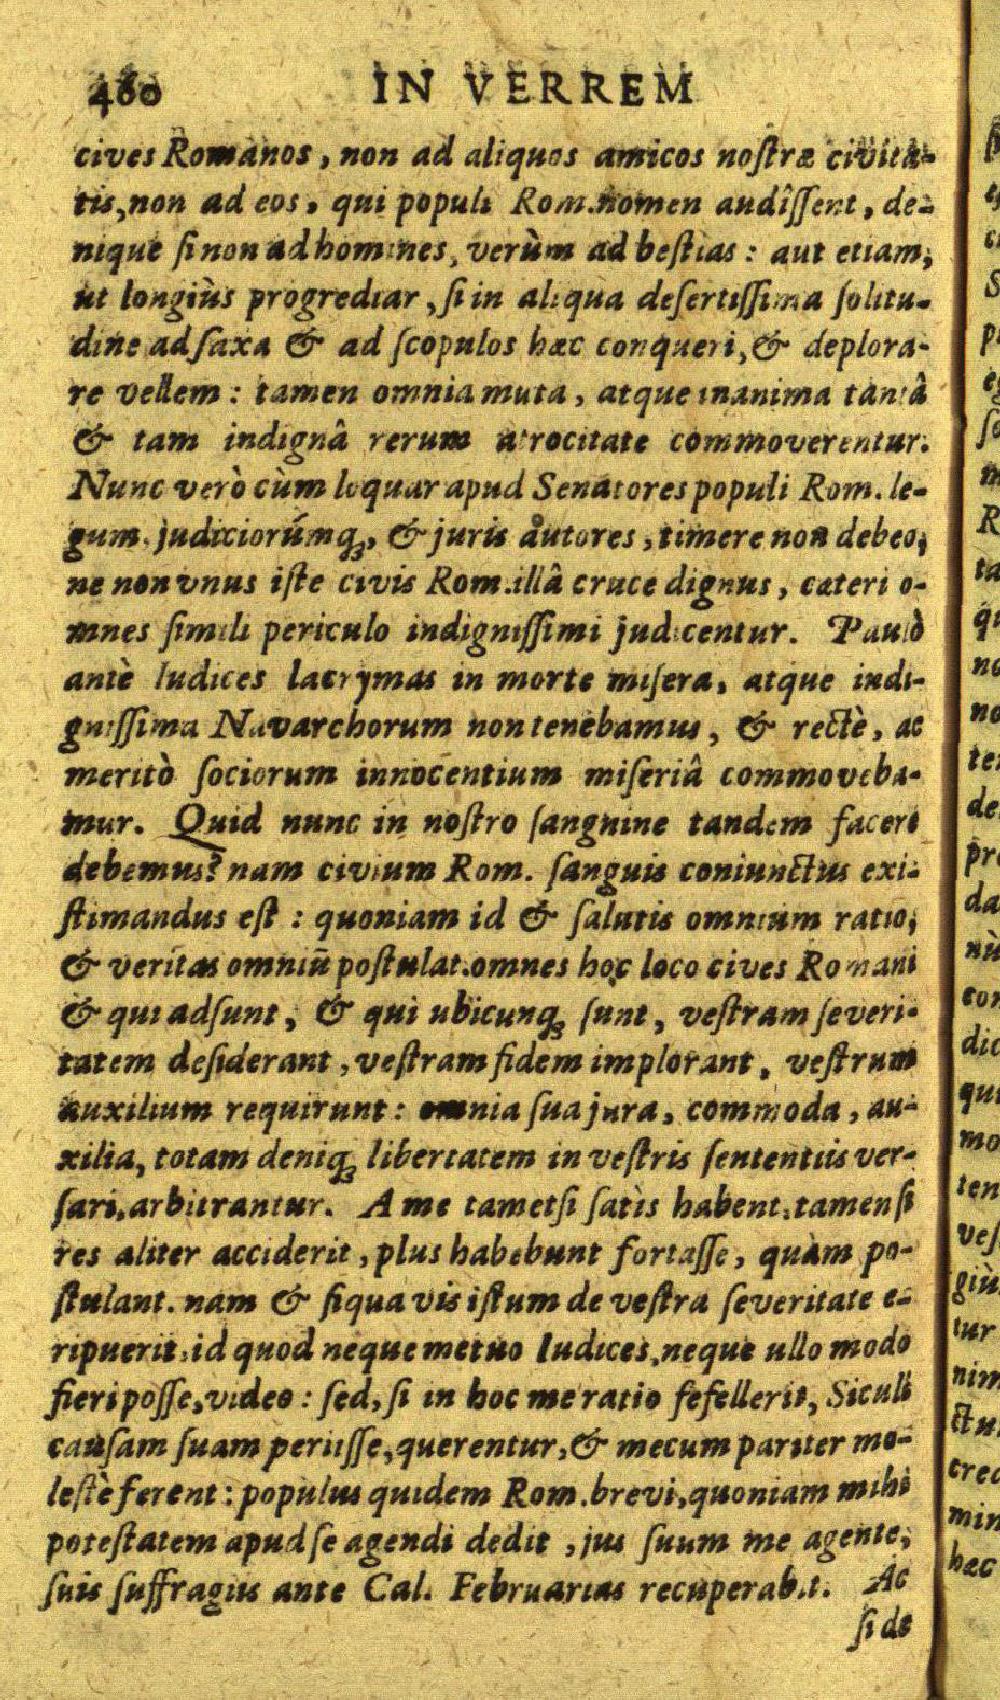 460 IN VERREM
cives Romanos, non ad aliquos amicos nostræ civita-
tis, non ad eos, qui populi Rom. nomen audîssent, de-
nique si non ad homines, verùm ad bestias: aut etiam,
ut longiùs progrediar, si in aliqua desertissima solitu-
dine ad saxa & ad scopulos hæc conqueri, & deplora-
re vellem: tamen omnia muta, atque inanima tantâ
& tam indignâ rerum atrocitate commoverentur.
Nunc verò cùm loquar apud Senatores populi Rom. le-
gum, judiciorúmq;, & juris autores, timere non debeo,
ne non vnus iste civis Rom. illâ cruce dignus, cæteri o-
mnes simili periculo indignissimi judicentur. Paulò
antè Iudices lacrymas in morte misera, atque indi-
gnissima Navarchorum non tenebamus, & rectè, ac
meritò sociorum innocentium miseriâ commoveba-
mur. Quid nunc in nostro sanguine tandem facere
debemus? nam civium Rom. sanguis coniunctus exi-
stimandus est: quoniam id & salutis omnium ratio,
& veritas omniũ postulat. omnes hoc loco cives Romani
& qui adsunt, & qui ubicunq; sunt, vestram severi-
tatem desiderant, vestram fidem implorant, vestrum
auxilium requirunt: omnia sua jura, commoda, au-
xilia, totam deniq; libertatem in vestris sententiis ver-
sari, arbitrantur. A me tametsi satìs habent, tamen si
res aliter acciderit, plus habebunt fortasse, quàm po-
stulant. nam & siqua vis istum de vestra severitate e-
ripuerit, id quod neque metuo Iudices, neque ullo modo
fieri posse, video: sed, si in hoc me ratio fefellerit, Siculi
causam suam periisse, querentur, & mecum pariter mo-
lestè ferent: populus quidem Rom. brevi, quoniam mihi
potestatem apud se agendi dedit, jus suum me agente,
suis suffragiis ante Cal. Februarias recuperabit. Ac
si de